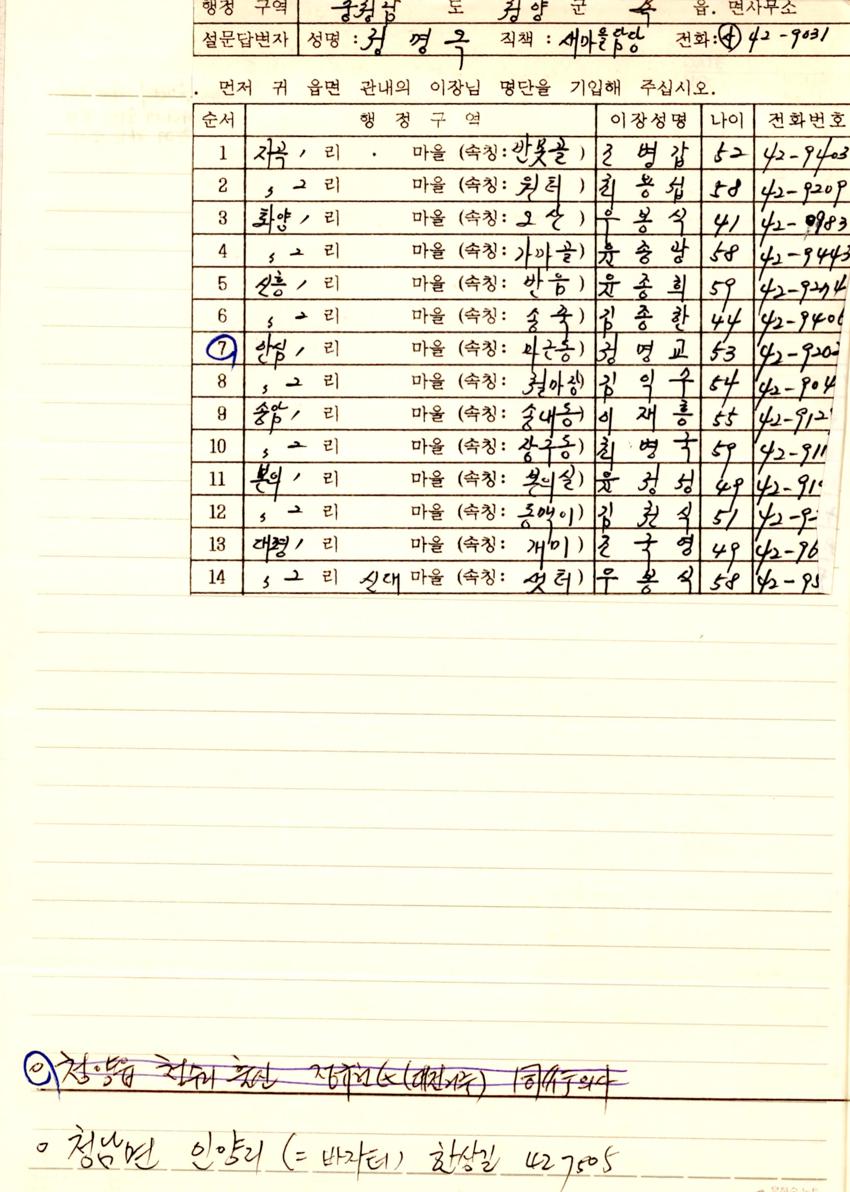 행정 구역 충청남 도 청양 군 읍. 면사무소
설문답변자 성명 : 정 명 옥 직책 : 새마을담당 전화: 42-9031
. 먼저 귀 읍면 관내의 이장님 명단을 기입해 주십시오.
순서 행 정 구 역 이장성명 나이 전화번호
1 지곡 1 리 마을 (속칭: 반못골 ) 병 갑 52 42-9403
2 〃 2 리 마을 (속칭: 원터 ) 최 봉 섭 58 42-9209
3 화양 1 리 마을 (속칭: 오산 ) 우 봉 식 41 42- 983
4 〃 2 리 마을 (속칭: 가마골 ) 윤 종 58 42-9443
5 신흥 1 리 마을 (속칭: 반음 ) 윤 종 희 59
6 〃 2 리 마을 (속칭: 송죽 ) 김 종 한 44 42-940
7 안심 1 리 마을 (속칭: 마근동 ) 정 명 교 53 42-920
8 〃 2 리 마을 (속칭: ) 김 익 수 54 42-904
9 송암 1 리 마을 (속칭: 송내동 ) 이 재 흥 55 42-912
10 〃 2 리 마을 (속칭: 장구동 ) 최 병 국 59 42-911
11 분의 1 리 마을 (속칭: 분의실 ) 윤 정 49 42-91
12 〃 2 리 마을 (속칭: 동맥이 ) 김 권 식 51 42-9
13 대평 1 리 마을 (속칭: 개미 ) 국 영 49 42-96
14 〃 2 리 신대 마을 (속칭: 샛터 ) 우 봉 식 58 42-95
○ 청양읍
○ 청남면 인양리 (= 바자티) 한상길 42 7505